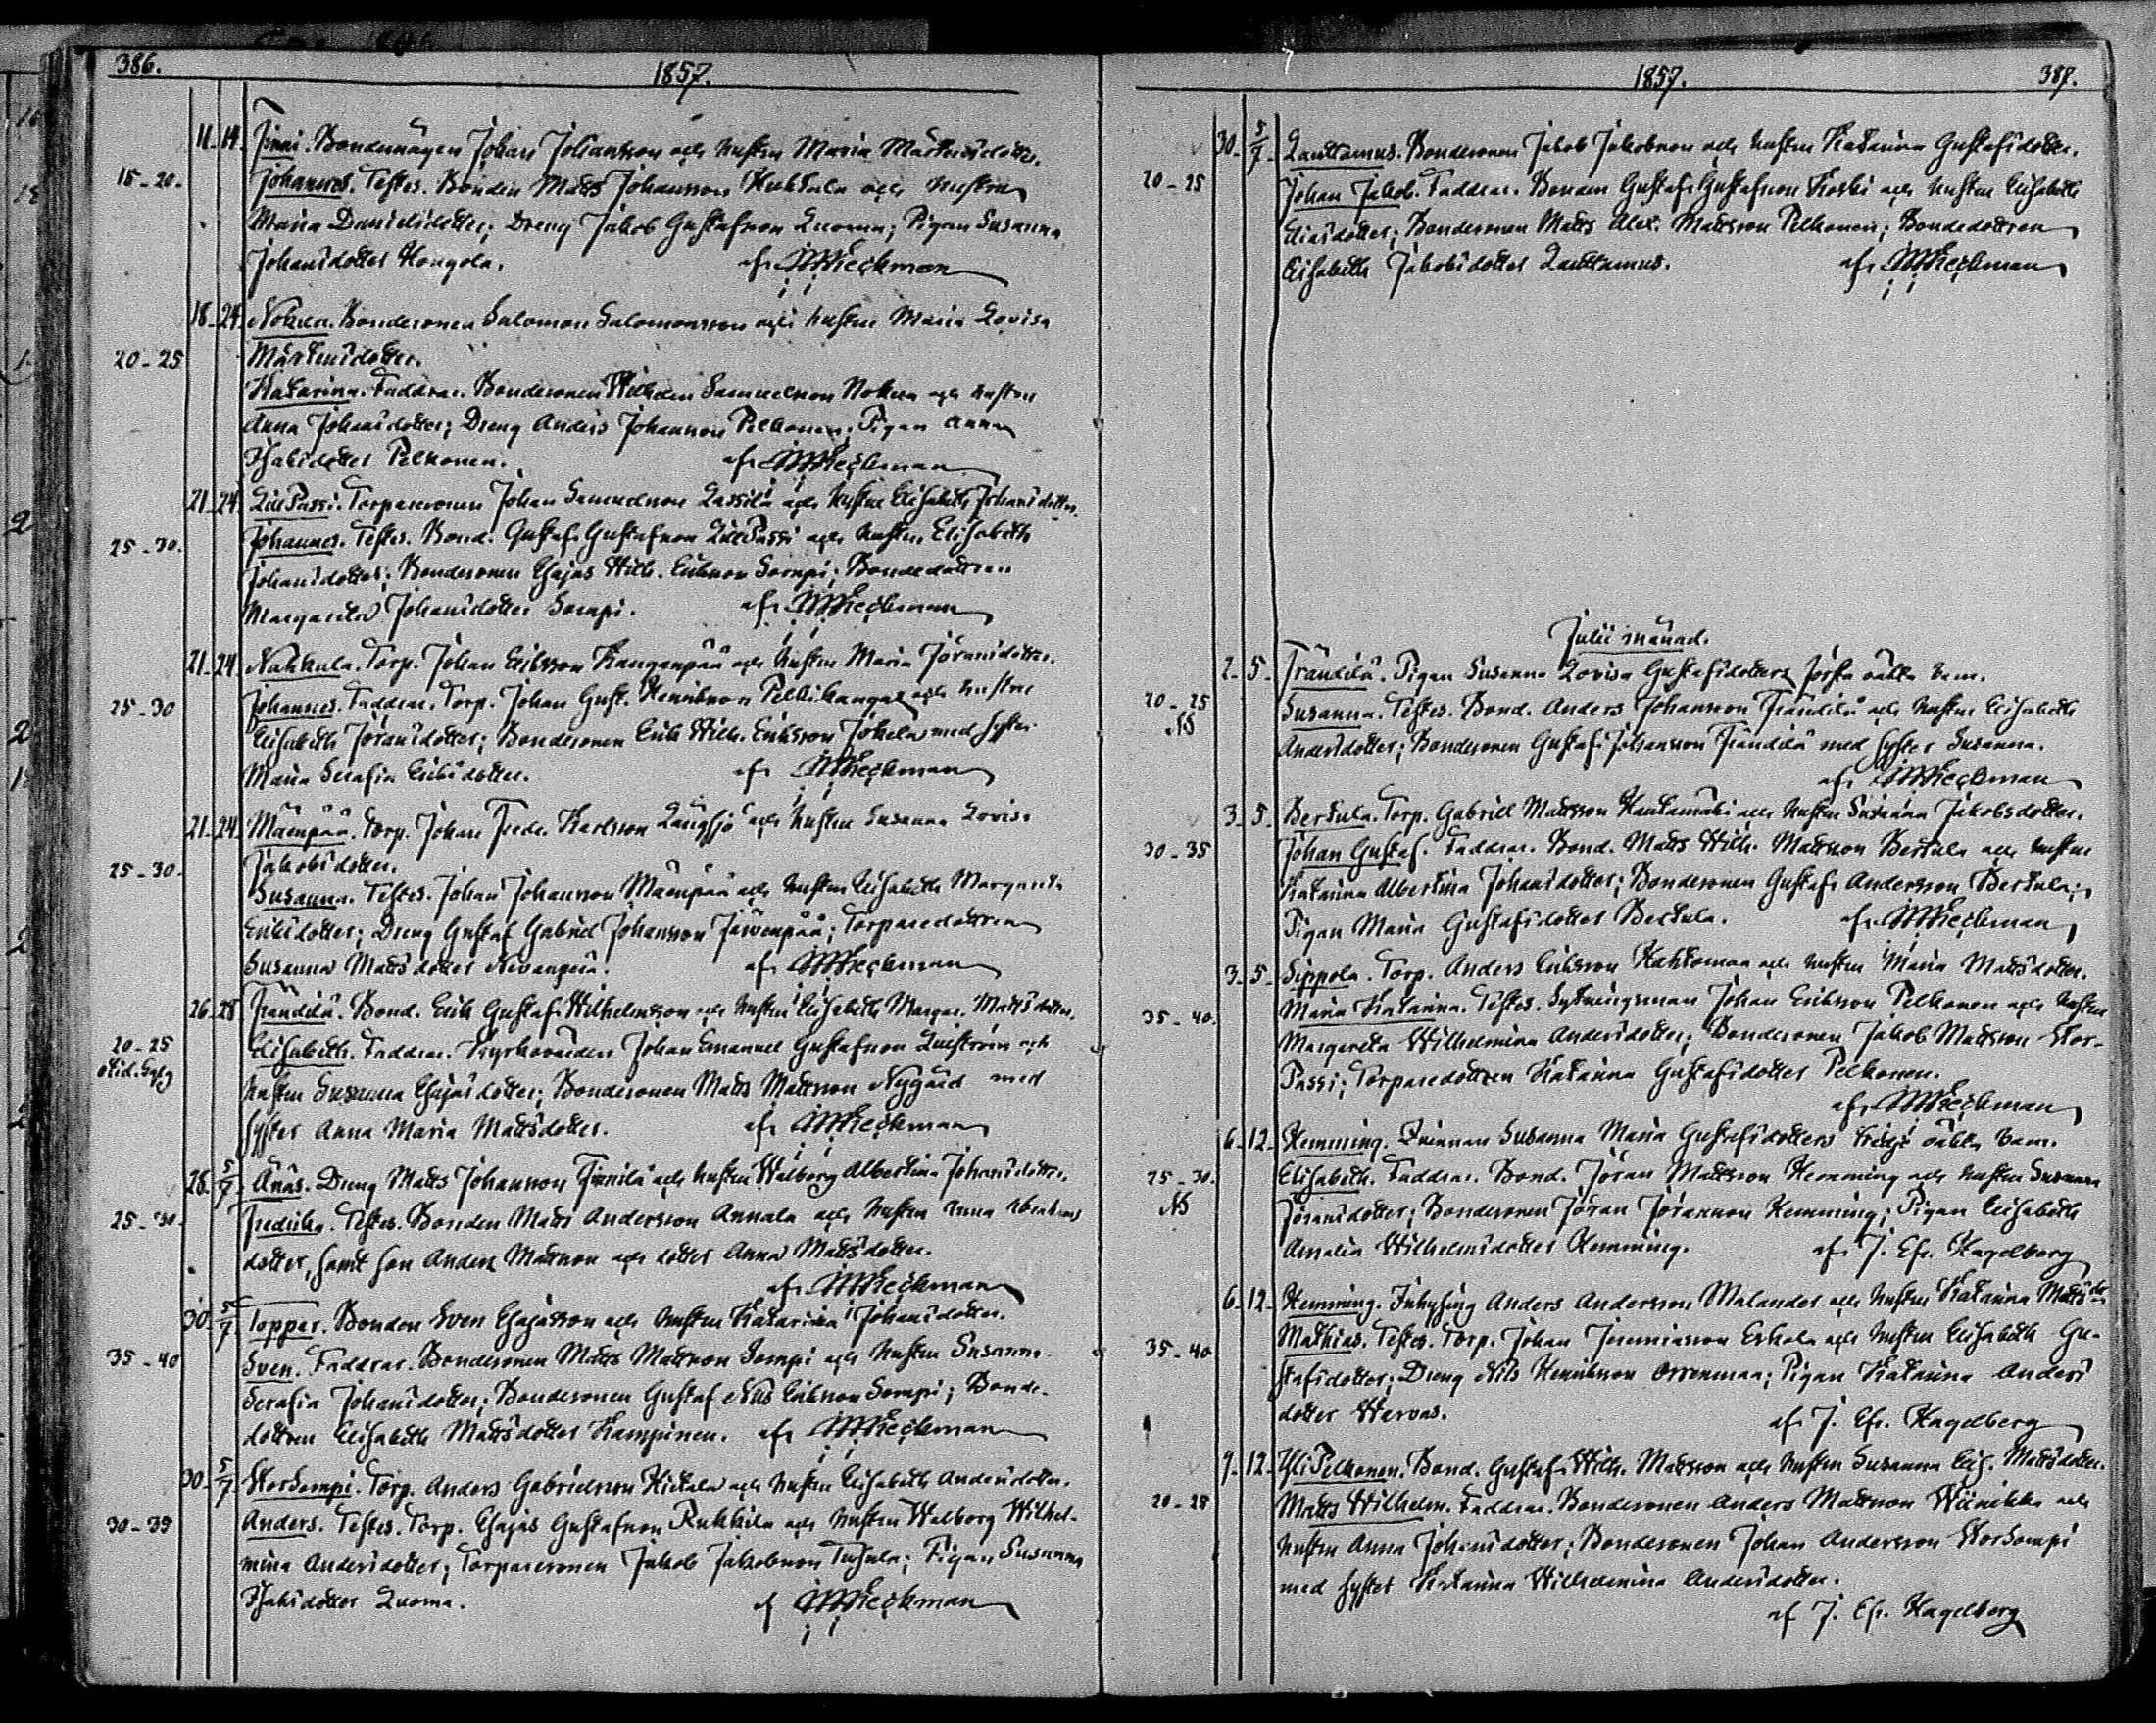 386.
1857.
11-14. Finni. Bondemågen Johan Johansson och hustru Maria Mårtensdotter.
15-20. Johannes. Testes. Bonden Matts Johansson Huhtala och hustru
Maria Danielsdotter; Dreng Jakob Gustafsson Luoma; Pigan Susanna
Johansdotter Hongola. af IMHeckman
18-24. Bondesonen Salomon Salomonsson och hustru Maria Lovisa
20-25 Mårtensdotter.
Katarina. Faddrar. Bondesonen Samuelsson och hustru
Anna Johansdotter; Dreng Anders Johansson Pelkonen; Pigan Anna
Isaksdotter Pelkonen. af IMHeckman
21-24. LillPassi. Torparesonen Johan Samuelsson Lassila och hustru Elisabeth Johansdotter.
25-30. Johannes. Testes. Bond. Gustaf Gustafsson LillPassi och hustru Elisabeth
Johansdotter; Bondesonen Esajas Wilh. Eriksson Sorupi; Bondedottren
Margareta Johansdotter Sompi. af IMHeckman
21-24. Nahkala. Torp. Johan Eriksson Kanganpää och hustru Maria Jöransdotter.
25-30 Johannes. Faddrar. Torp. Johan Gust. Henriksson och hustru
Elisabeth Jöransdotter; Bondesonen Erik Wilh. Eriksson Jokela med syster
Maria Serafia Eriksdotter. af IMHeckman
21-24. Mäenpää. Torp. Johan Fredr. Karlsson Långsjö och hustru Susanna Lovisa
25-30. Jakobsdotter.
Susanna. Testes. Johan Johansson Mäenpää och hustru Elisabeth Margareta
Eriksdotter; Dreng Gustaf Gabriel Johansson Järvenpää; Torparedottren
Susanna Mattsdotter Nevanperä. af IMHeckman
26-28 Frändilä. Bond. Erik Gustaf Wilhelmsson och hustru Elisabeth Margar. Mattsdotter.
20-25 Elisabeth. Faddrar. Kyrkovärden Johan Emanuel Gustafsson och
hustru Susanna Esajasdotter; Bondesonen Matts Mattsson Nygård med
syster Anna Maria Mattsdotter. af IMHeckman
28. 5/7 Änäs. Dreng Matts Johansson och hustru Walborg Albertina Johansdotter.
25-30. Fredrika. Testes. Bonden Matts Andersson Annala och hustru Anna Abrahams
dotter, samt son Anders Mattsson och dotter Anna Mattsdotter.
af IMHeckman
30. 5/7 Toppar. Bonden Sven Esajasson och hustru Katarina Johansdotter.
35-40 Sven. Faddrar. Bondesonen Matts Mattsson Sompi och hustru Susanna
Serafia Johansdotter; Bondesonen Gustaf Nils Eriksson Sompi; Bonde-
dottren Elisabeth Mattsdotter Kampinen. af IMHeckman
30. 5/7 StorSompi. Torp. Anders Gabrielsson Hietala och hustru Elisabeth Andersdotter.
30-35 Anders. Testes. Torp. Esajas Gustafsson Ruhkila och hustru Walborg Wilhel-
mina Andersdotter; Torparesonen Jakob Jakobsson; Pigan Susanna
Isaksdotter Luoma. af IMHeckman
1857. 387.
30. 5/7. Lauttamus. Bondesonen Jakob Jakobsson och hustru Katarina Gustafsdotter.
20-25 Johan Jakob. Faddrar. Bonden Gustaf Gustafsson Koski och hustru Elisabeth
Eliasdotter; Bondesonen Matts Alex. Mattsson Pelkonen; Bondedottren
Elisabeth Jakobsdotter Lauttamus. af IMHeckman
Julii månad.
2-5. Frändilä. Pigan Susanna Lovisa Gustafsdotters första oäkta barn.
20-25 Susanna. Testes. Bond. Anders Johansson Frändilä och hustru Elisabeth
NS Andersdotter; Bondesonen Gustaf Johansson Frändilä med syster Susanna.
af IMHeckman
3-5. Bertula. Torp. Gabriel Mattsson Hautamäki och hustru Susanna Jakobsdotter.
30-35 Johan Gustaf. Faddrar. Bond. Matts Wilh. Mattsson Bertula och hustru
Katarina Albertina Johansdotter; Bondesonen Gustaf Andersson Bertula;
Pigan Maria Gustafsdotter Bertula. af IMHeckman
3-5- Sippola. Torp. Anders Eriksson Kahtomaa och hustru Maria Mattsdotter.
35-40. Maria Katarina. Testes. Sytningsman Johan Eriksson Pelkonen och hustru
Margareta Wilhelmina Andersdotter; Bondesonen Jakob Mattsson Stor-
Passi; Torparedottren Katarina Gustafsdotter Pelkonen.
af IMHeckman
6-12. Hemming. Qvinnan Susanna Maria Gustafsdotters tredje oäkta barn.
25-30. Elisabeth. Faddrar. Bond. Jöran Mattsson Hemming och hustru Susanna
NS Jöransdotter; Bondesonen Jöran Jöransson Hemming; Pigan Elisabeth
Amalia Wilhelmsdotter Hemming. af J. Efr. Hagelberg
6-12- Hemming. Inhysing Anders Andersson Malander och hustru Katarina Mattsdr
35-40 Mathias. Testes. Torp. Johan Jeremiasson Erkala och hustru Elisabeth Gu-
stafsdotter; Dreng Nils Henriksson Orrenmaa; Pigan Katarina Anders
dotter Warvas. af J. Efr. Hagelberg
9-12- YliPelkonen. Bond. Gustaf Wilh. Mattsson och hustru Susanna Elis. Mattsdotter.
20-25 Matts Wilhelm. Faddrar. Bondesonen Anders Mattsson Wiinikka och
hustru Anna Johansdotter; Bondesonen Johan Andersson StorSompi
med syster Katarina Wilhelmina Andersdotter.
af J. Efr. Hagelberg